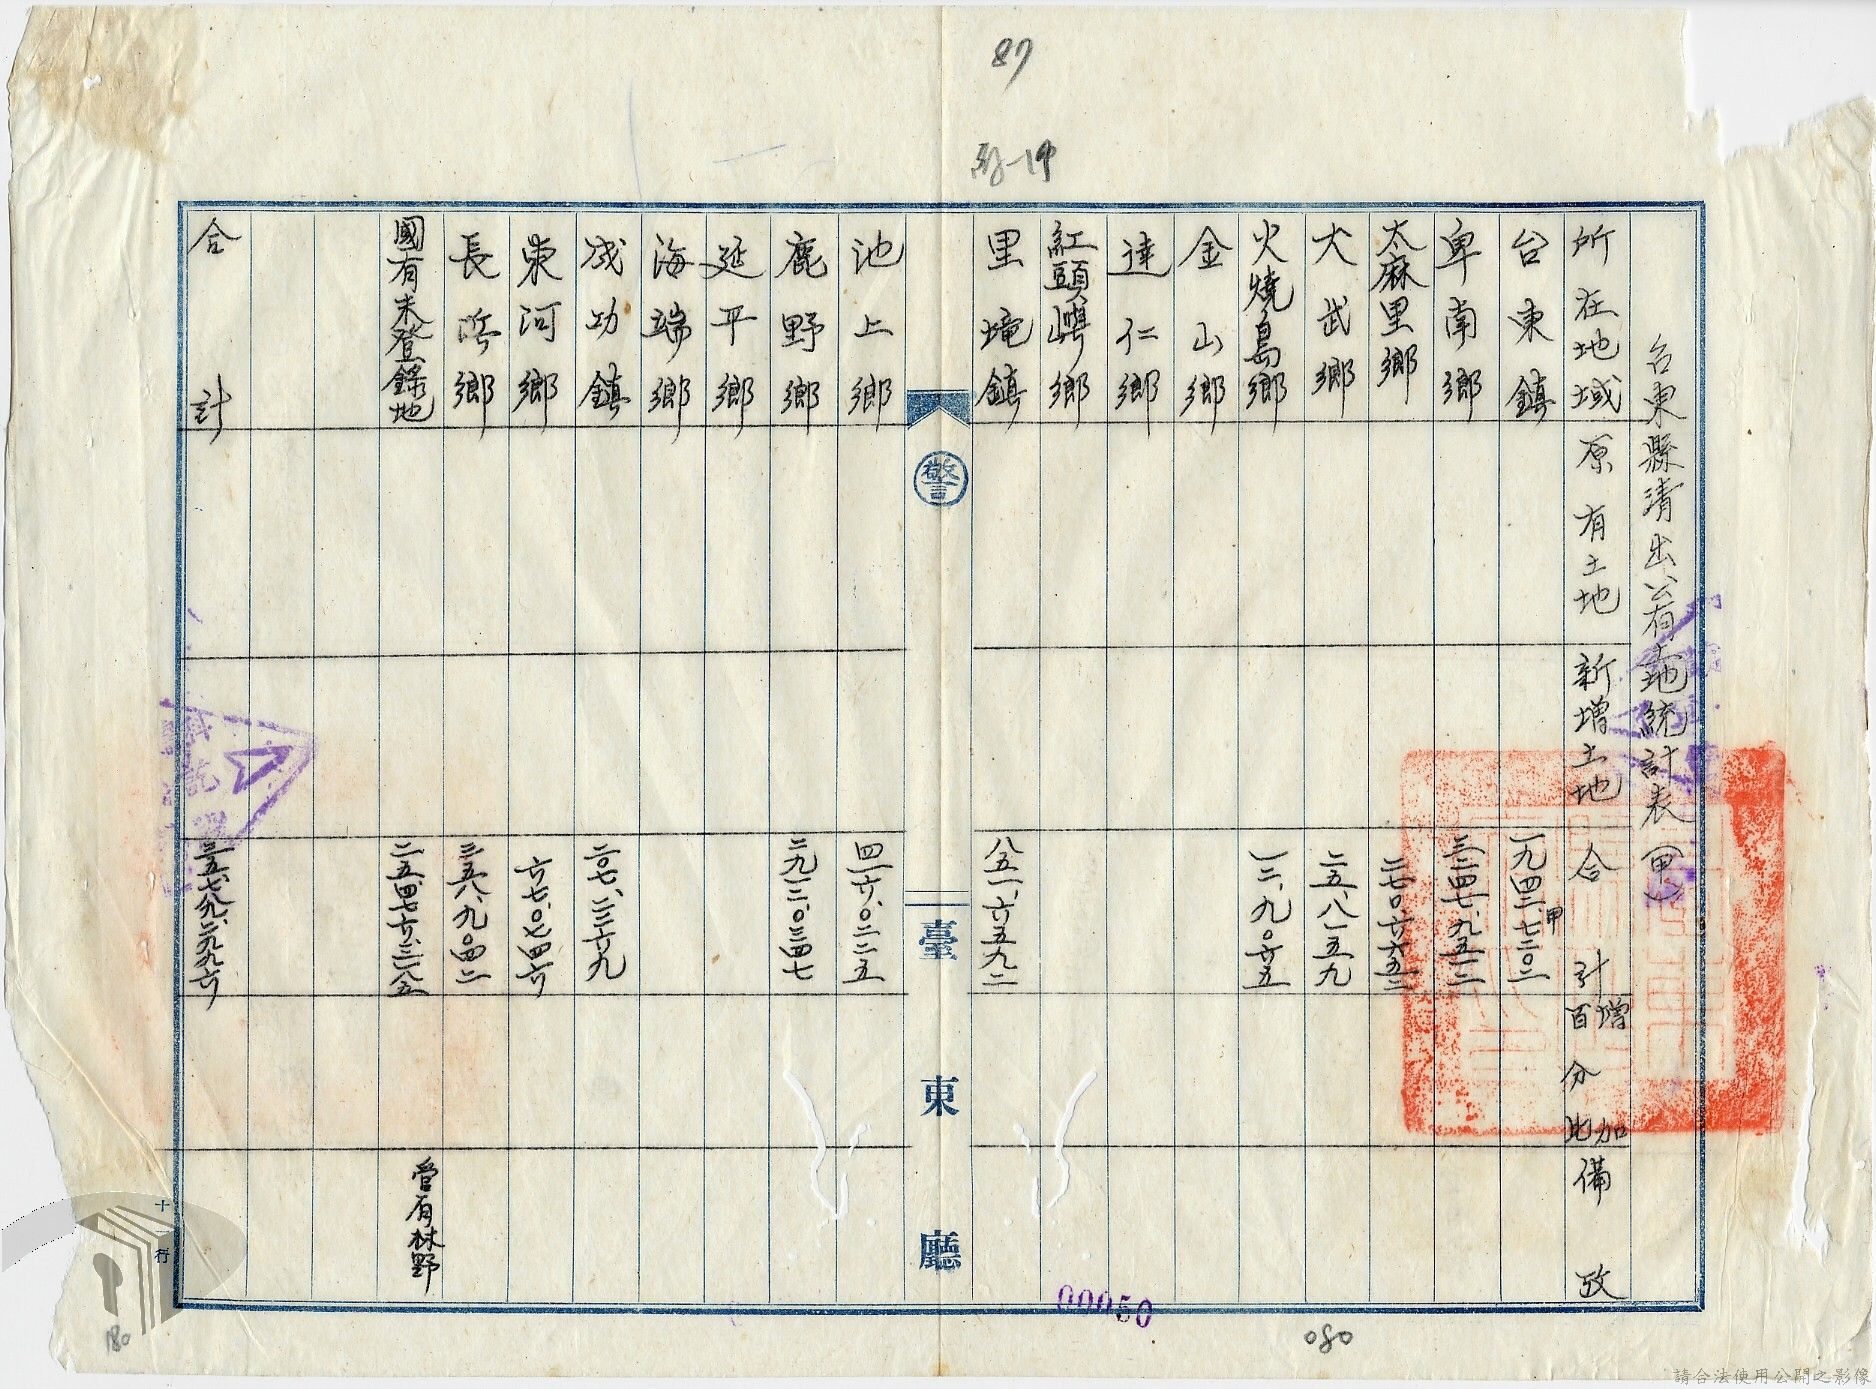 87
台東縣清出公有土地統計表(甲)
所在地域 原有土地 新增土地 合計 增加百分比 備攷
台東鎮 一九四二、七二〇二甲
卑南鄉 三二四七、九五二二
太麻里鄉 二七〇、六六五二
大武鄉 二五、八一五九
火燒島鄉 一二、九〇六五
金山鄉
達仁鄉
紅頭嶼鄉
里壠鎮 八五一、六五九二
警
臺東廳
池上鄉 四一六、〇二二五
鹿野鄉 二九一二、〇三四七
延平鄉
海端鄉
成功鎮 二〇七、二三六九
東河鄉 六七〇、七四六
長濱鄉 三五八、九〇四二
國有未登錄地 二五、四七六、三一八五 管有林野
合計 三五、七八九、二九九六
十一行
00050
080
180
請合法使用公開之影像